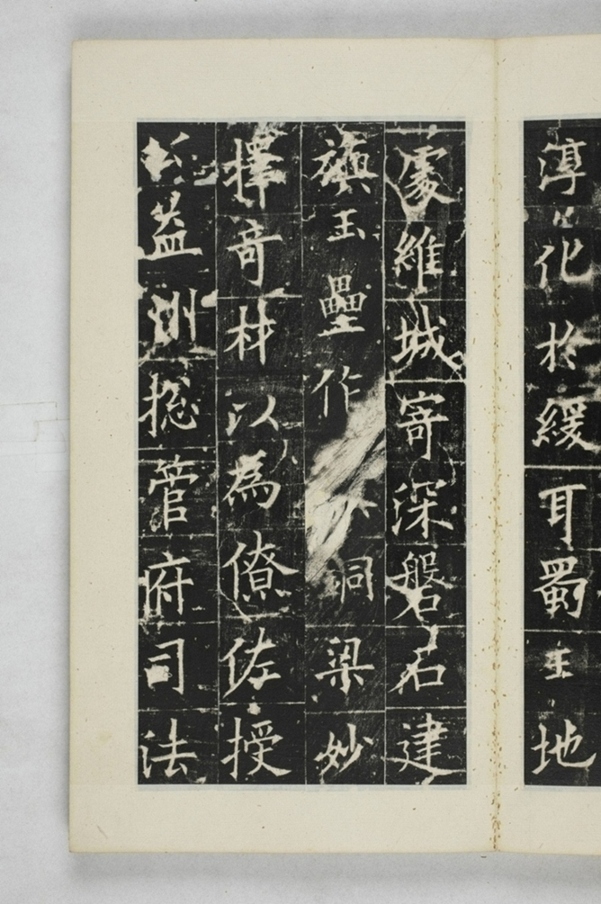 淳化於緩耳蜀王地
處維城寄深磐石建
旟玉壘作洞梁妙
擇奇材以為僚佐授
公益州捴管府司法